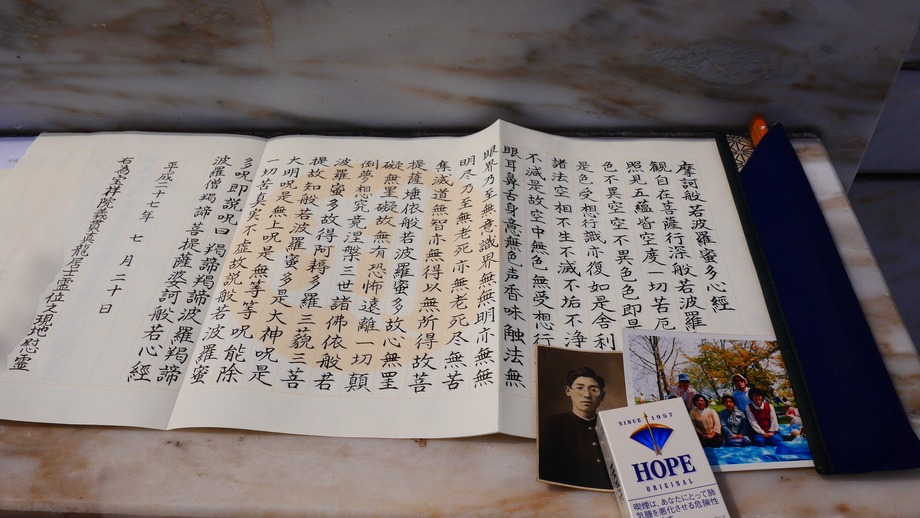 摩訶般若波羅蜜多心経
観自在菩薩行深般若波羅
照見五蘊皆空度一切苦厄
色不異空空不異色色即是
是色受想行識亦復如是舎利
諸法空相不生不滅不垢不浄
不滅是故空中無色無受想行
眼耳鼻舌身意無色声香味触法無
眼界乃至無意識界無無明亦無無
明尽乃至無老死亦無老死尽無苦
集滅道無智亦無得以無所得故菩
提薩埵依般若波羅蜜多故心無罣
礙無罣礙故無有恐怖遠離一切顛
倒夢想究竟涅槃三世諸佛依般若
波羅蜜多故得阿耨多羅三藐三菩
提故知般若波羅蜜多是大神呪是
大明呪是無上呪是無等等呪能除
一切苦真実不虚故説般若波羅蜜
多呪即説呪曰 羯諦羯諦波羅羯諦
波羅僧羯諦菩提薩婆訶般若心経
平成二十七年 七 月 二十 日
右為宝祥院義賢真龍居士霊位之現地慰霊
SINCE 1957
HOPE
ORIGINAL
喫煙は、あなたにとって肺
気腫を悪化させる危険性